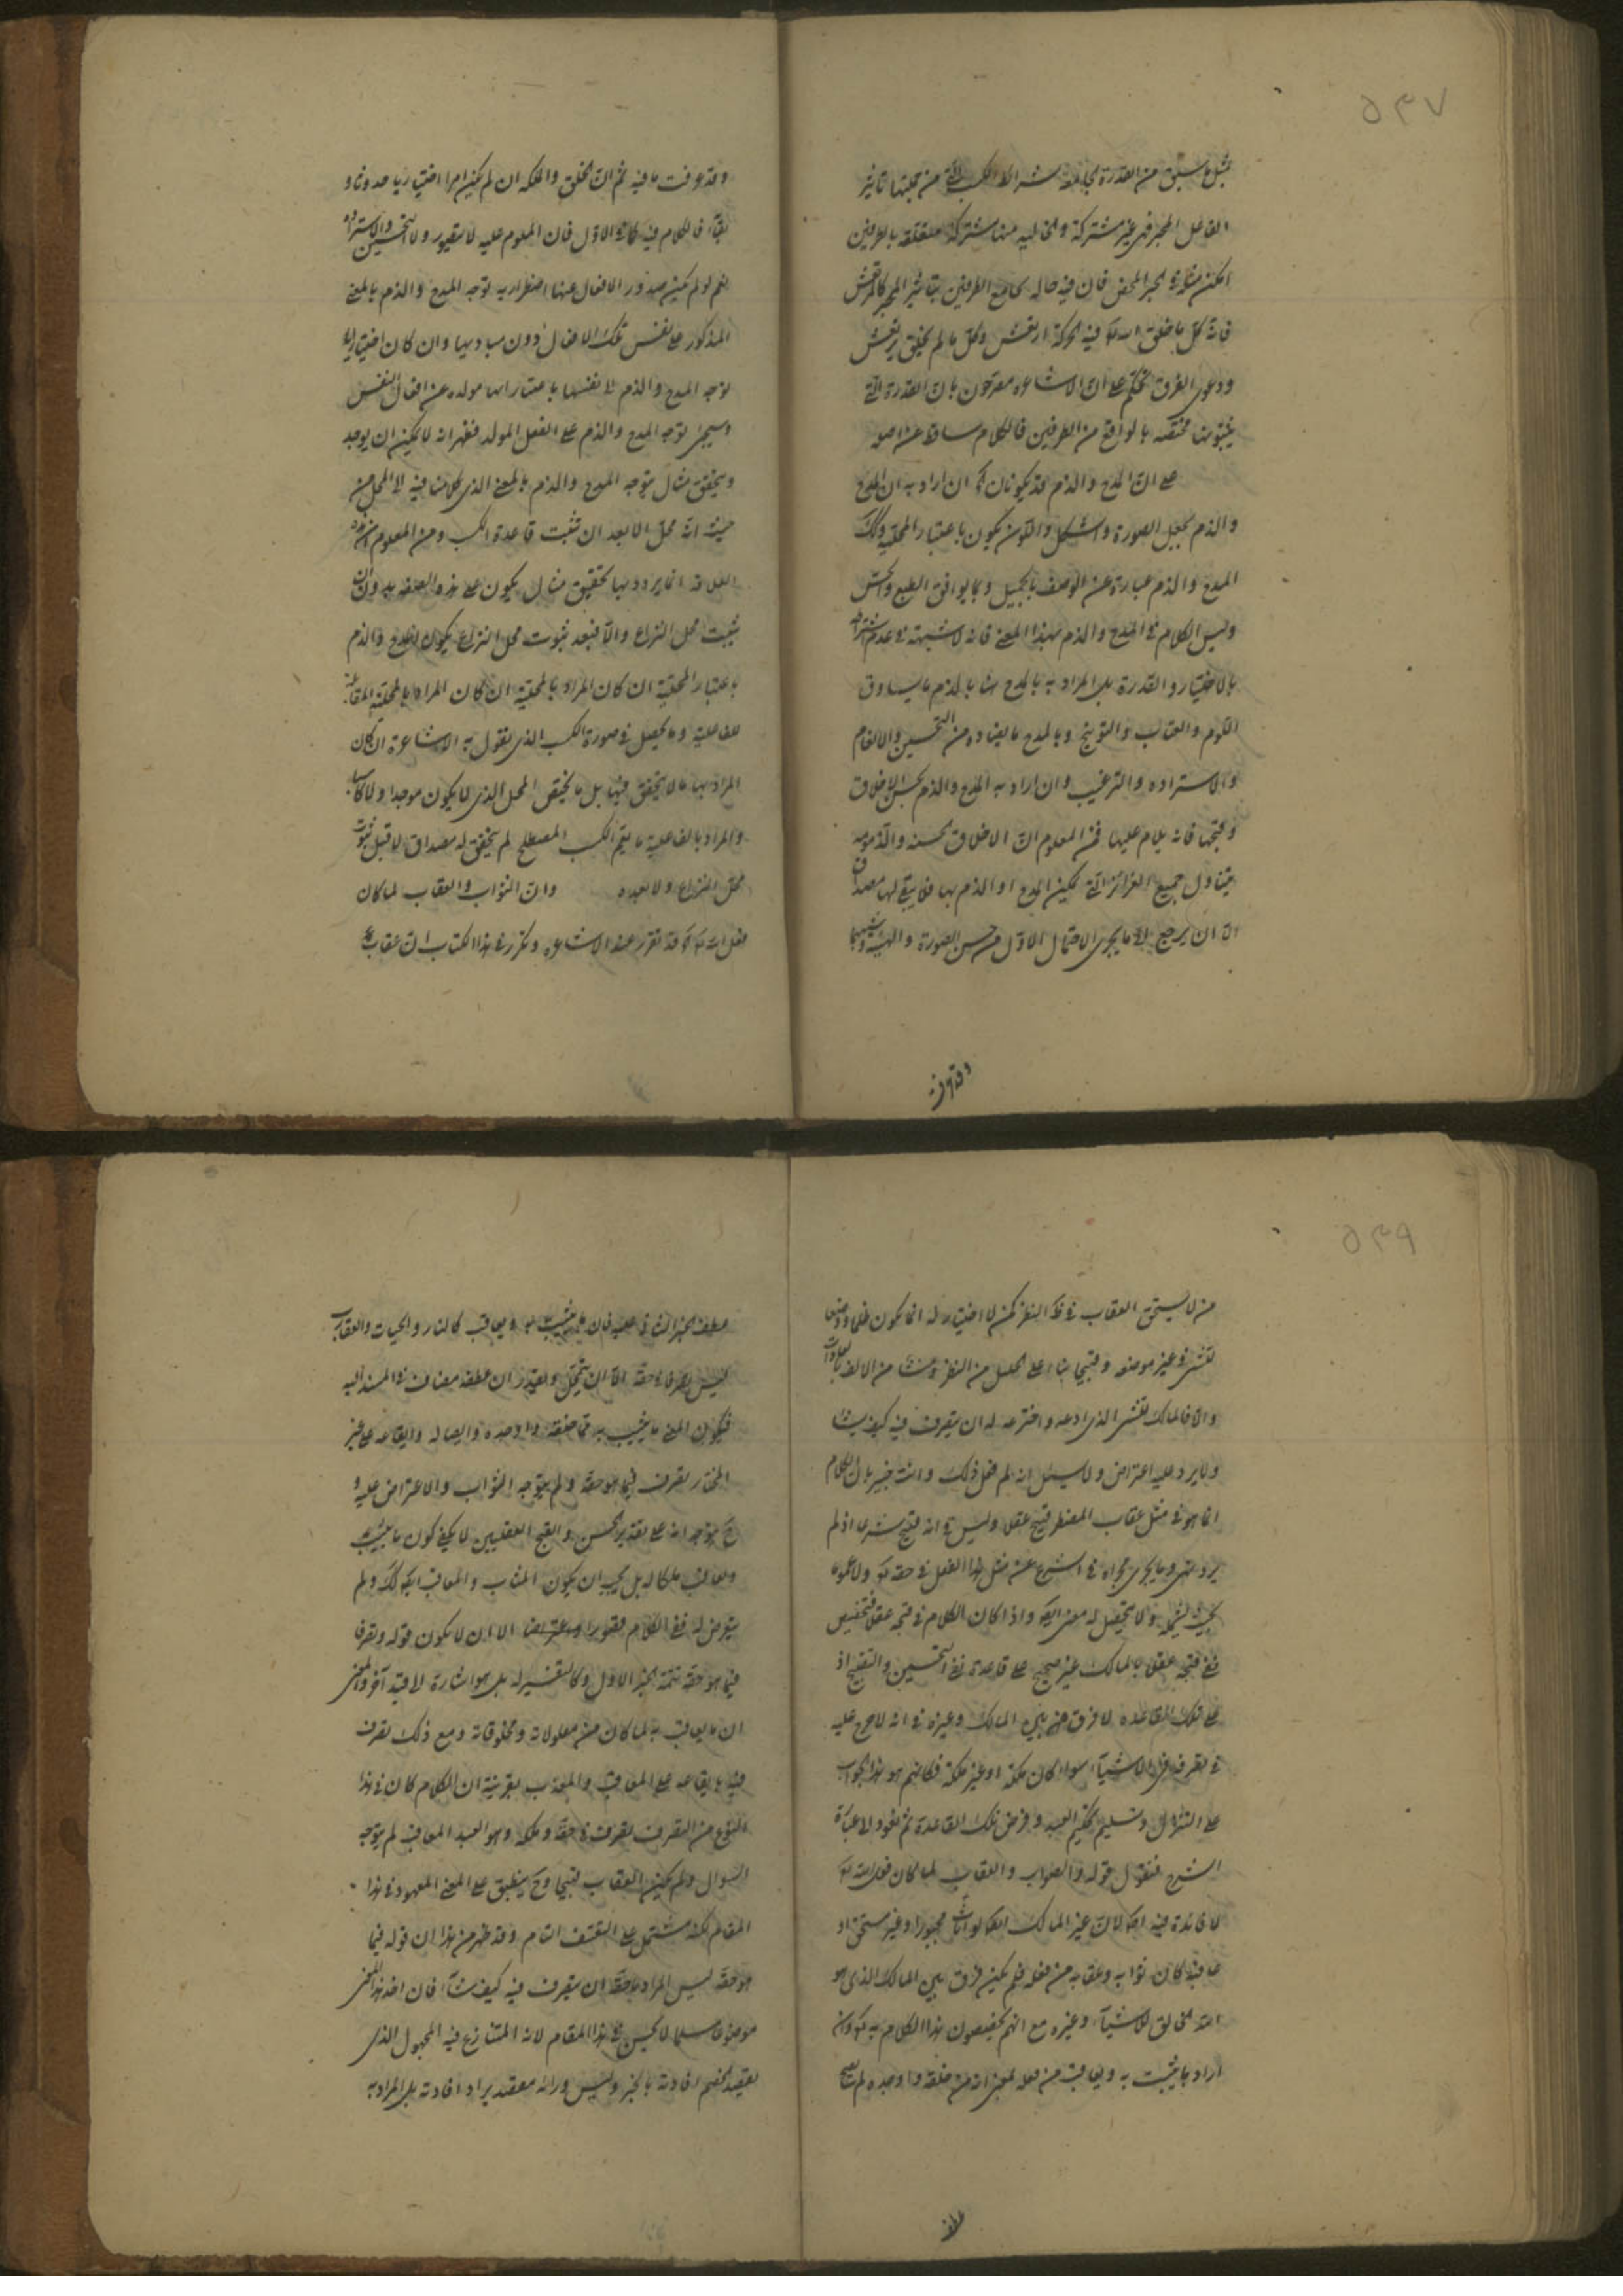 ٥٣٧
بمثل ما سبق من القدرة الجامعة شرائط الكسب التي من جملتها تأثير
الفاعل المجبر فهي غير مشتركة والخالية منها مشتركة متعلقة بالطرفين
امكن مثله في الجبر المحض فان فيه حالة تجامع الطرفين بتأثير المجبر كالمرتعش
فانه كل ما خلق الله تع فيه الحركة ارتعش وكل ما لم يخلق لم يرتعش
ودعوى الفرق تحكم على ان الاشاعرة مصرحون بان القدرة التي
يثبتونها مختصة بالواقع من الطرفين فالكلام ساقط عن اصله
على ان المدح والذم قد يكونان ان اراد به ان المدح
والذم بجعل الصورة والشكل واللون يكون باعتبار المحلية وذلك
المدح والذم عبارة عن الوصف بالجميل وبما يوافق الطبع والحس
وليس الكلام في المدح والذم بهذا المعنى فانه لا شبهة في عدم اشتراطه
بالاختيار والقدرة بل المراد به بالمدح هنا بالذم ما يساوق
اللوم والعتاب والتوبيخ وبالمدح ما يضاده من التحسين والانعام
والاستزاده والترغيب وان اراد به المدح والذم بحسن الاخلاق
وقبحها فانه يلام عليها فمن المعلوم ان الاخلاق الحسنة والذمومه
يتناول جميع الغرائز التي يمكن المدح او الذم بها فلا يبقى لها مصداق
الا ان يرجع الى ما يجرى الاحتمال الاول من حسن الصورة والهيئة وشبهها
وقد عرفت
وقد عرفت ما فيه ثم ان الخلق والملكه ان لم يكن امرا اختياريا حدوثا و
بقاء فالكلام فيه كما في الاول فان المعلوم عليه لا يتصور ولا التحسين والاستزاده
نعم لو لم يكن صدور الافعال عنها اضطراريه توجه المدح والذم بالمعنى
المذكور على نفس تلك الافعال دون مباديها وان كان اختياريا
توجه المدح والذم الى نفسها باعتبار انها مولده عن افعال النفس
وسيجئ توجه المدح والذم على الفعل المولد فظهر انه لا يمكن ان يوجد
ويتحقق مثال يتوجه المدح والذم بالمعنى الذى كلامنا فيه الى المحل من
حيث انه محل الا بعد ان تثبت قاعدة الكسب ومن المعلوم ان هذه
العلاوة انما يرد وبها تحقيق مثال يكون على هذه الصفه بدون ان
يثبت محل النزاع والا فبعد ثبوت محل النزاع يكون المدح والذم
باعتبار المحلية ان كان المراد بالمحلية ان كان المراد بالمحلية المقابلة
للفاعلية وما يحصل في صورة الكسب الذى يقول به الاشاعرة ان كان
المراد بها ما لا يتحقق فيها بل ما يختص المحل الذى لا يكون موجدا ولا كاسبا
والمراد بالفاعلية ما يعم الكسب المصطلح لم يتحقق له مصداق لا قبل ثبوت
محل النزاع ولا بعده وان الثواب والعقاب لما كان
فعل الله تع قد تقرر عند الاشاعره وتكرر في هذا الكتاب ان عقاب
٥٣٩
من لا يستحق العقاب في النظر لكن لا اختيار له انما يكون ظلما ووضعا
للشئ في غير موضعه وقبيحا بناء على الجليل من النظر ومنشأ من الالف بالعادات
والا فالمالك للشئ الذى ابدعه واخترعه له ان يتصرف فيه كيف يشاء
ولا يرد عليه اعتراض ولا يسئل انه لم فعل ذلك وانت خبير بان الكلام
انما هو في مثل عقاب المضطر قبيح عقلا وليس في انه قبيح شرعا اذ لم
يرد نهى وما يجرى مجراه في الشرع عن مثل هذا الفعل في حقه تع ولا عموم
بحيث يشمله ولا يتحصل له معنى ايضا واذا كان الكلام في قبحه عقلا فتخصيص
نفى قبحه عقلا بالمالك غير صحيح على قاعدة نفى التحسين والتقبيح اذ
على تلك القاعده لا فرق بين المالك وغيره في انه لا حرج عليه
في تصرفه في الاشياء سواء كان ملكه او غير ملكه فكانهم هو بهذا الجواب
على التنزل وتسليم تحكيم العبيد وفرض تلك القاعدة ثم نعود الى عبارة
الشرح فنقول قوله والثواب والعقاب لما كان فعل الله تع
لا فائدة فيه ايضا لان غير المالك ايضا لو اثاب مجبورا وغير مستحق او
عاقبه كان ثوابه وعقابه من فعله فلم يكن فرق بين المالك الذى هو
الله الخالق للاشياء وغيره مع انهم يخصصون هذا الكلام به تع وان
اراد ما يثبت به ويعاقب من فعله بمعنى انه من خلقه واوجده لم يصح
عطف
عطف الجزاء الثانى عليه فان ما يثيب به ويعاقب كالنار والحيات والعقارب
ليس تصرفا في حقه الا ان يتمحل ويقدر ان عطفه مضاف في المسند اليه
فيكون المعنى ما يثيب به مما خلقه واوجده وايصاله وايقاعه على غير
المختار تصرف فيما هو حقه ولم يتوجه الثواب والاعتراض عليه و
ح يتوجه انه على تقدير الحسن والقبح العقليين لا يكفى كون ما يثيب
ويعاقب ملكا له بل يجب ان يكون المثاب والمعاقب ايضا كذلك ولم
يتعرض له ففى الكلام قصورا الا ان لا يكون قوله وتصرفا
فيما هو حقه تتمة الجزء الاول وكالتفسير له بل هو اشارة الى قيد آخر والمعنى
ان ما يعاقب به لما كان من معلولاته ومخلوقاته ومع ذلك تصرف
فيه بايقاعه على المعاقب والمعذب بقرينة ان الكلام كان في هذا
النوع من التصرف تصرف في حقه وملكه وهو العبد المعاقب لم يتوجه
السوال ولم يكن العقاب قبيحا وح ينطبق على المعنى المعهود في هذا
المقام لكنه مشتمل على التعسف التام وقد ظهر من هذا ان قوله فيما
هو حقه ليس المراد بحقه ان يتصرف فيه كيف شاء فان اخذ هذا المعنى
موضوعا مسلما لا يحسن في هذا المقام لانه المتنازع فيه المجهول الذى
يقصد الخصم افادته بالخبر وليس وراءه معقد يراد افادته بل المراد به